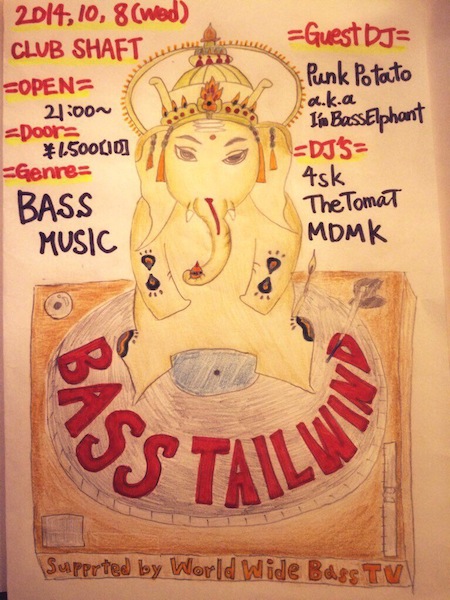 2014.10.8(wed)
CLUB SHAFT
=OPEN=
21:00~
=Door=
¥1.500(1D)
=Genre=
BASS
MUSIC
=Guest DJ=
Punk Potato
a.k.a
I'm BassElphant
=DJ'S=
4sk
TheTomaT
MDMK
BASS TAILWIND
Supprted by World Wide Bass TV